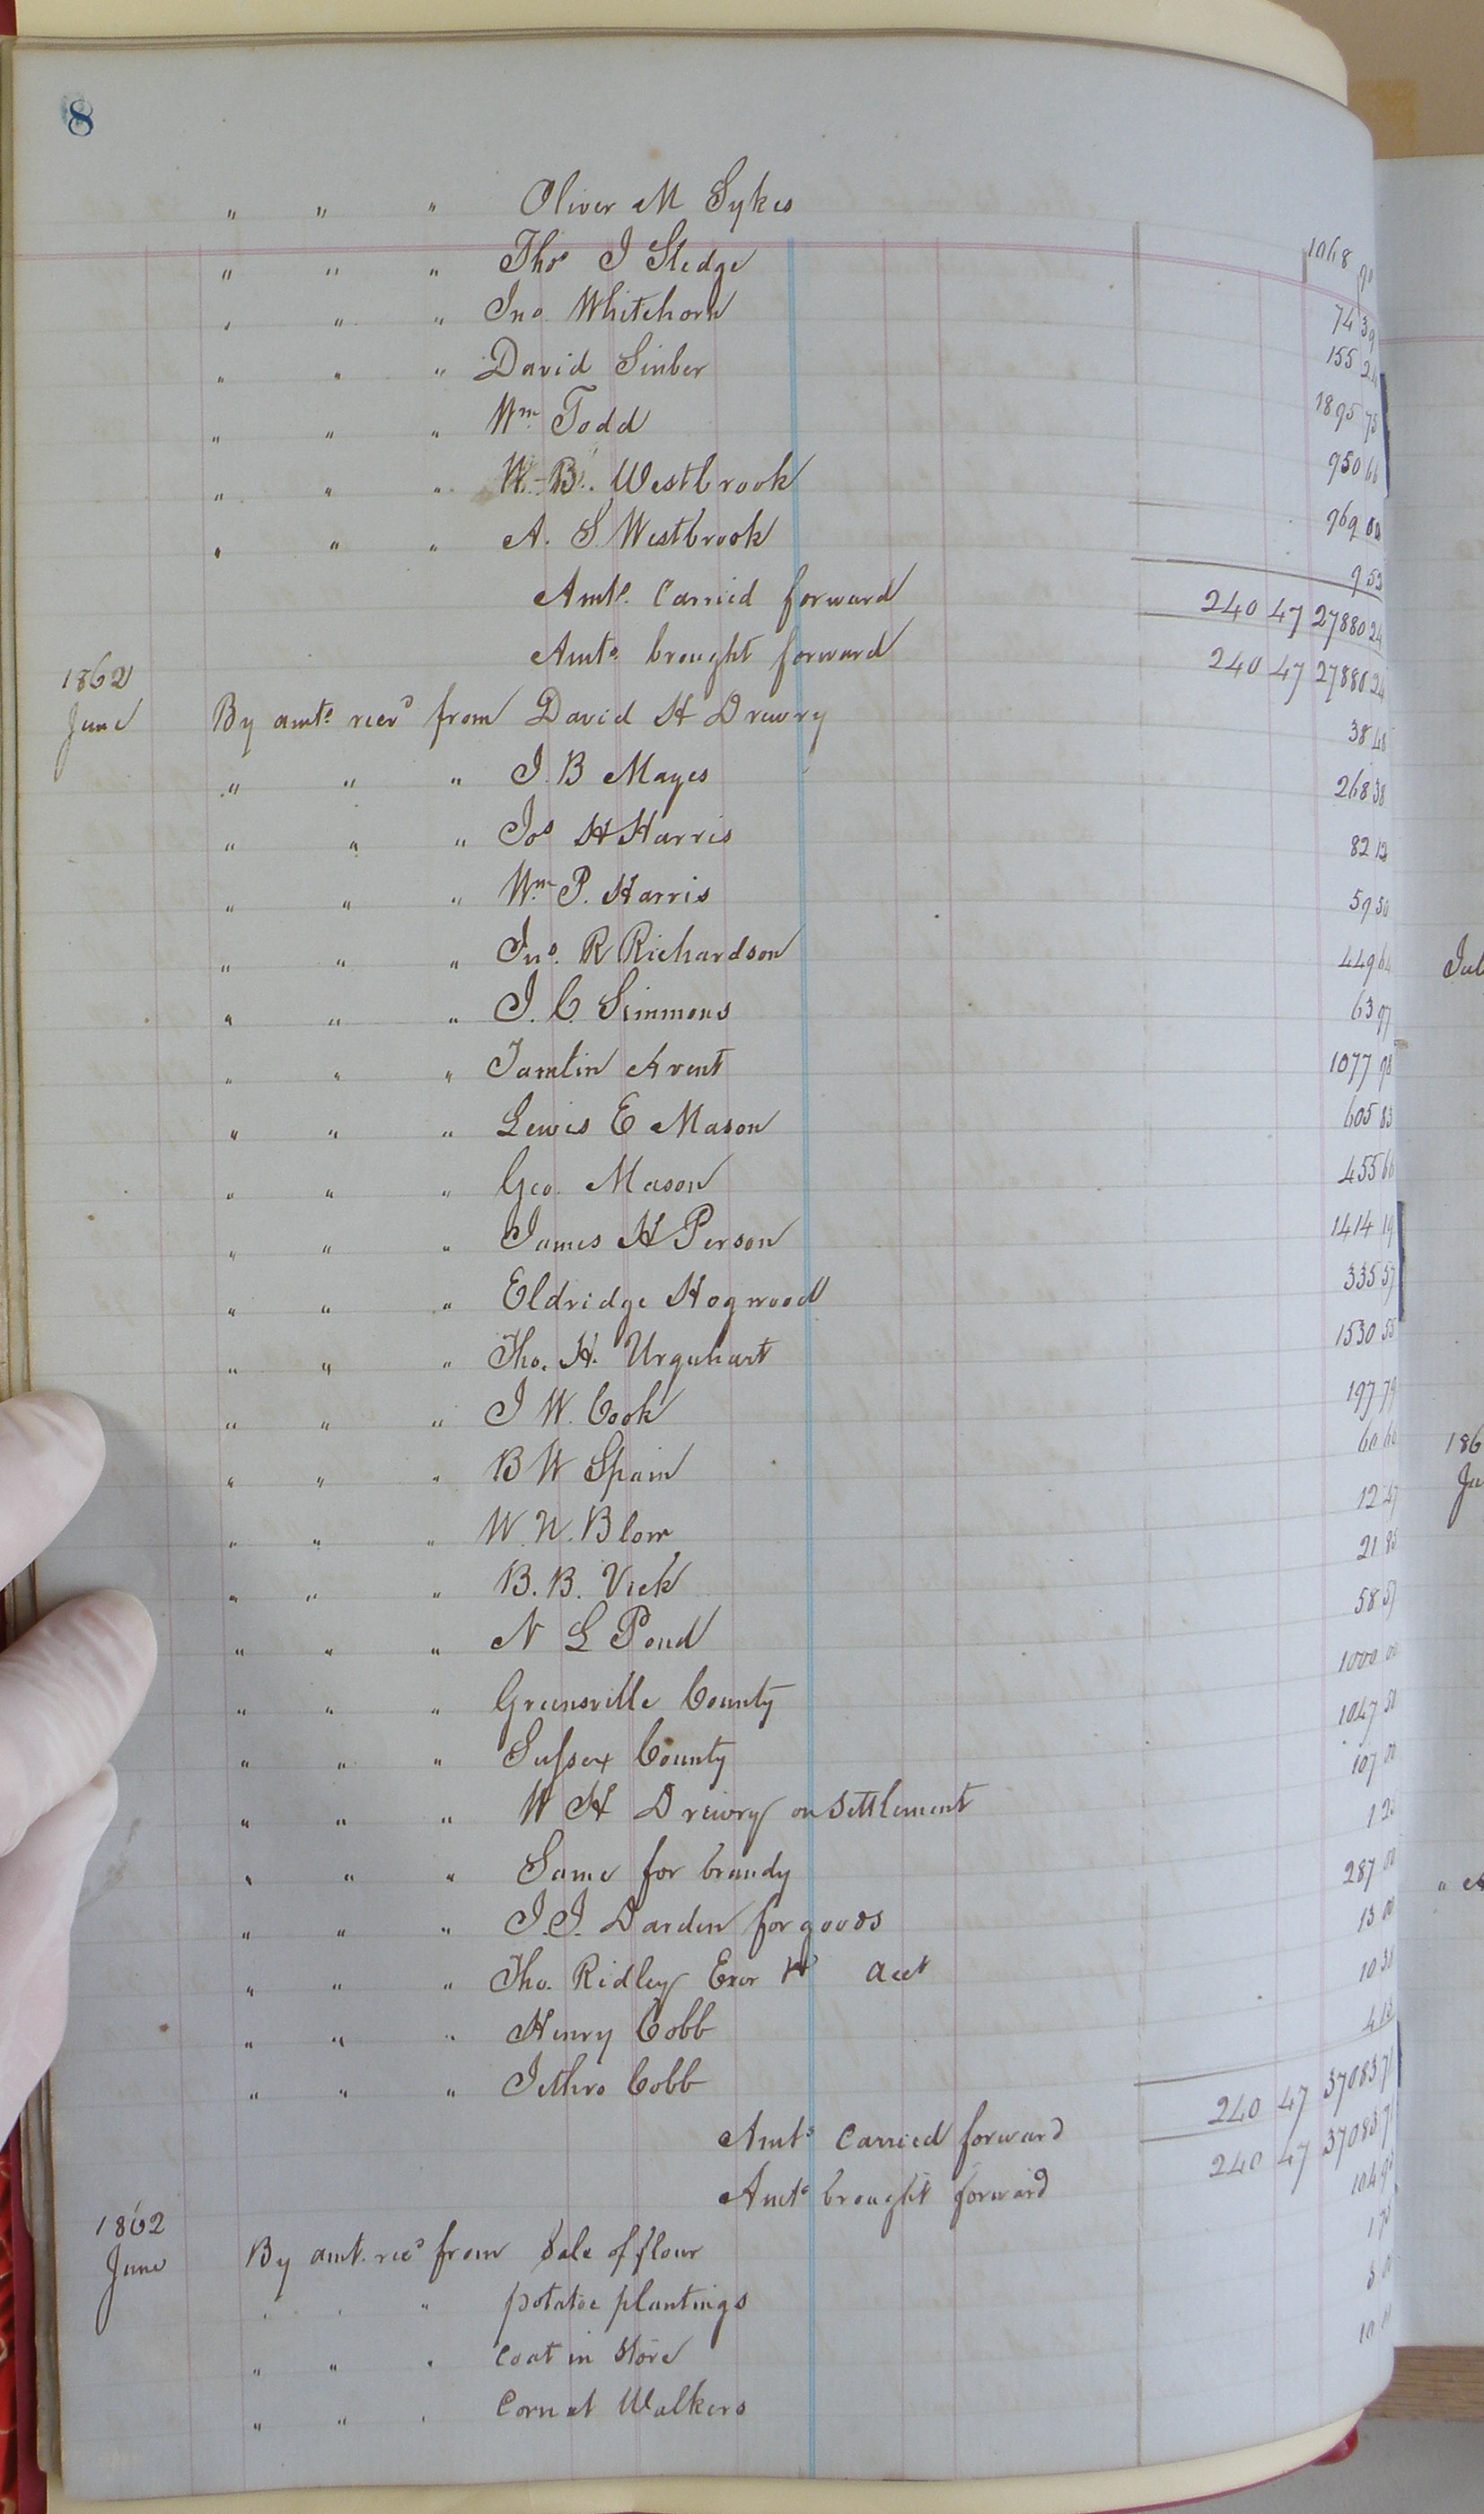 8
" " " Oliver M Sykes 1068 90
" " " Thos I Sledge 74 39
" " " Jno. Whitehorn 155 24
" " " David Sinber 1895 75
" " " Wm Todd 950 66
" " " W. B. Westbrook 969 00
" " " A. S. Westbrook 9 53
Amts. Carried forward 240 47 27880 24
Amts. brought forward 240 47 27880 24
1862
June By amts. recvd from David H Drewry 38 48
" " " J. B Mayes 268 38
" " " Jos H Harris 82 12
" " " Wm P. Harris 59 50
" " " Jno. R Richardson 449 64
" " " J. C. Simmons 63 97
" " " Tamlin Avent 1077 98
" " " Lewis E Mason 605 83
" " " Geo. Mason 455 60
" " " James H Person 1414 19
" " " Eldridge Hogwood 335 57
" " " Tho. H. Urquhart 1530 55
" " " J W. Cook 197 79
" " " B W Spain 60 60
" " " W. N. Blow 12 47
" " " B. B. Vick 21 85
" " " N L Pond 58 57
" " " Greensville County 1000 00
" " " Sussex County 1047 50
" " " W H Drewry on settlement 107 00
" " " Same for brandy 1 20
" " " J. J. Darden for goods 287 00
" " " Tho. Ridley Exor acct 13 00
" " " Henry Cobb 10 30
" " " Jethro Cobb 4 13
Amts Carried forward 240 47 37083 71
Amts brought forward 240 47 37083 71
1862
June By amt. recd from Sale of flour 104
" " " potatoe plantings 1 75
" " " Coat in Store
" " " Corn at Walkers 10